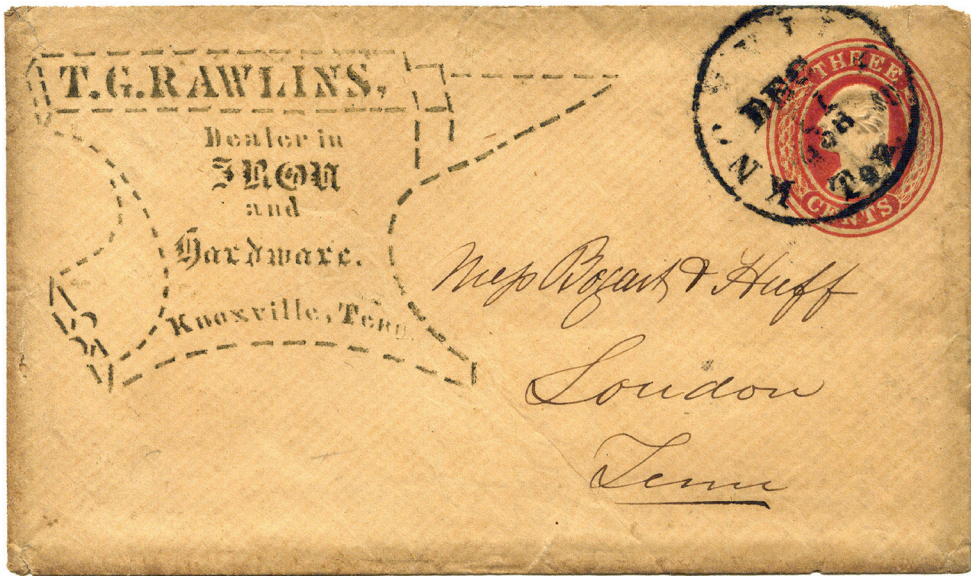 T. G. RAWLINS,
Dealer in
IRON
and
Hardware.
Knoxville, Tenn
THREE
CENTS
KNOXVILLE
DEC
Ten.
Mess Bogart & Huff
London
Tenn